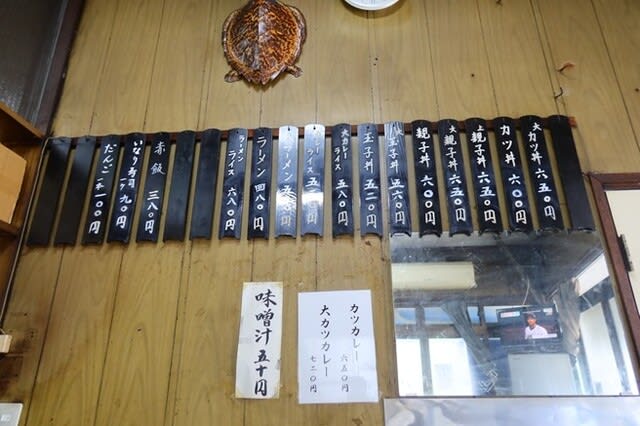 大カツ丼 六五〇円
カツ丼 六〇〇円
上親子丼 六五〇円
大親子丼 六五〇円
親子丼 六〇〇円
大玉子丼 五六〇円
玉子丼 五二〇円
大カレーライス 五八〇円
ラーメン
ラーメン 四八〇円
ラーメンライス 六八〇円
赤飯 三八〇円
いなり寿司 一ケ 九〇円
だんご 一本 一〇〇円
味噌汁 五十円
カツカレー 六五〇円
大カツカレー 七二〇円